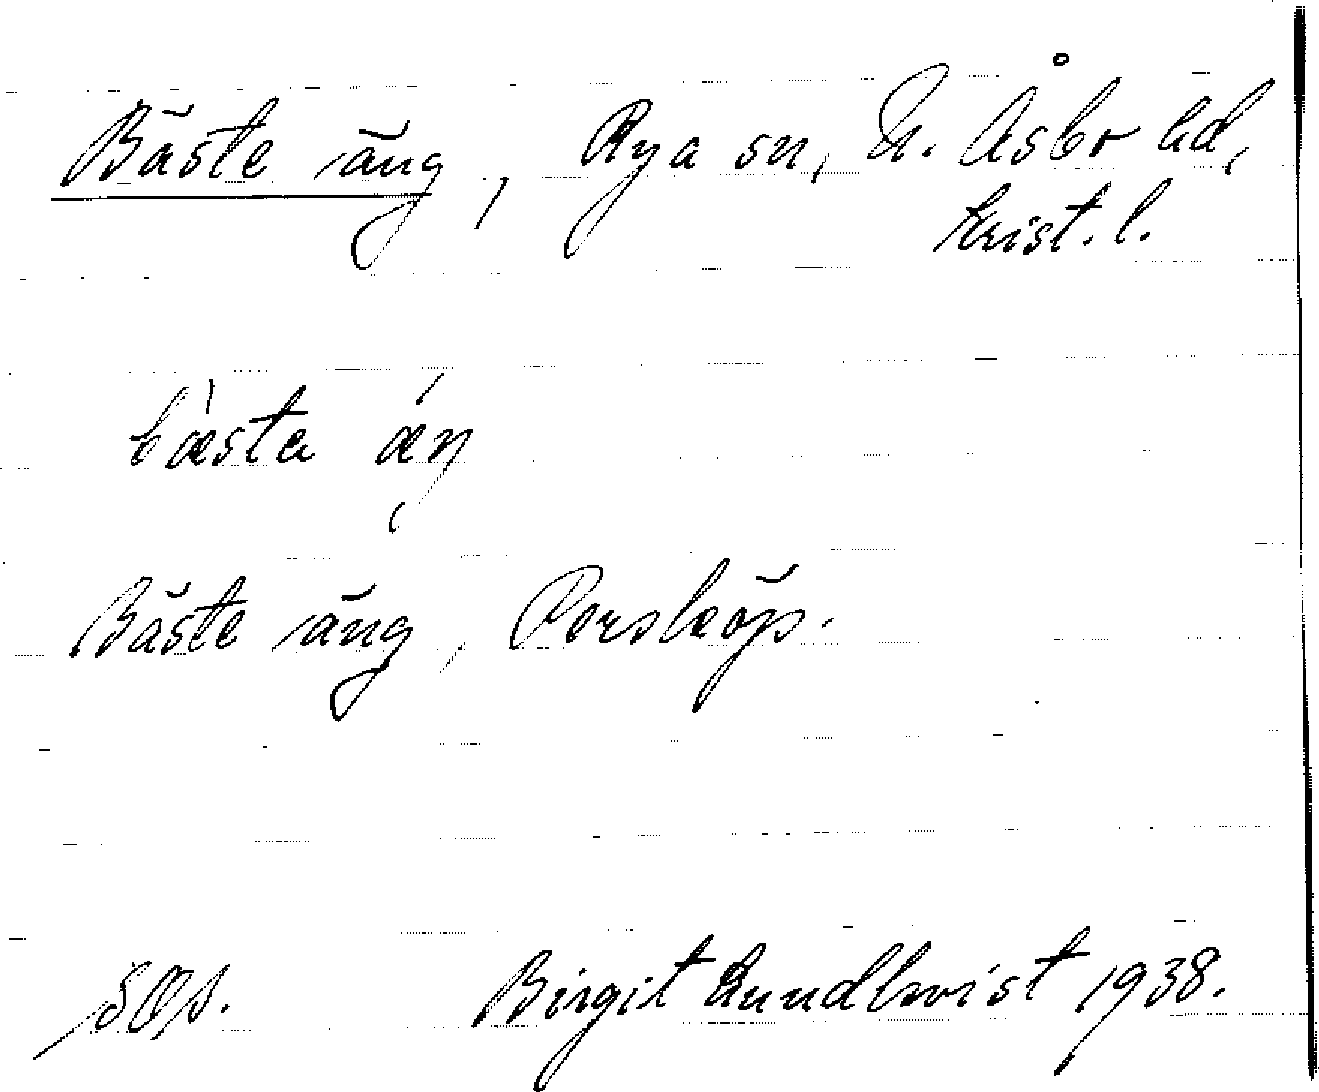 Bäste äng, Rya sn, N. Åsbo hd,
Krist. l.
bæ̀sta ǽŋ
Bäste äng, Porsköp.
Birgit Lundkvist 1938.